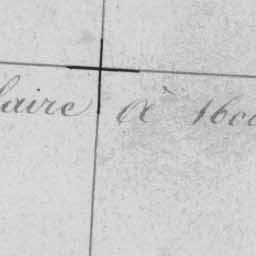 laire à 1600